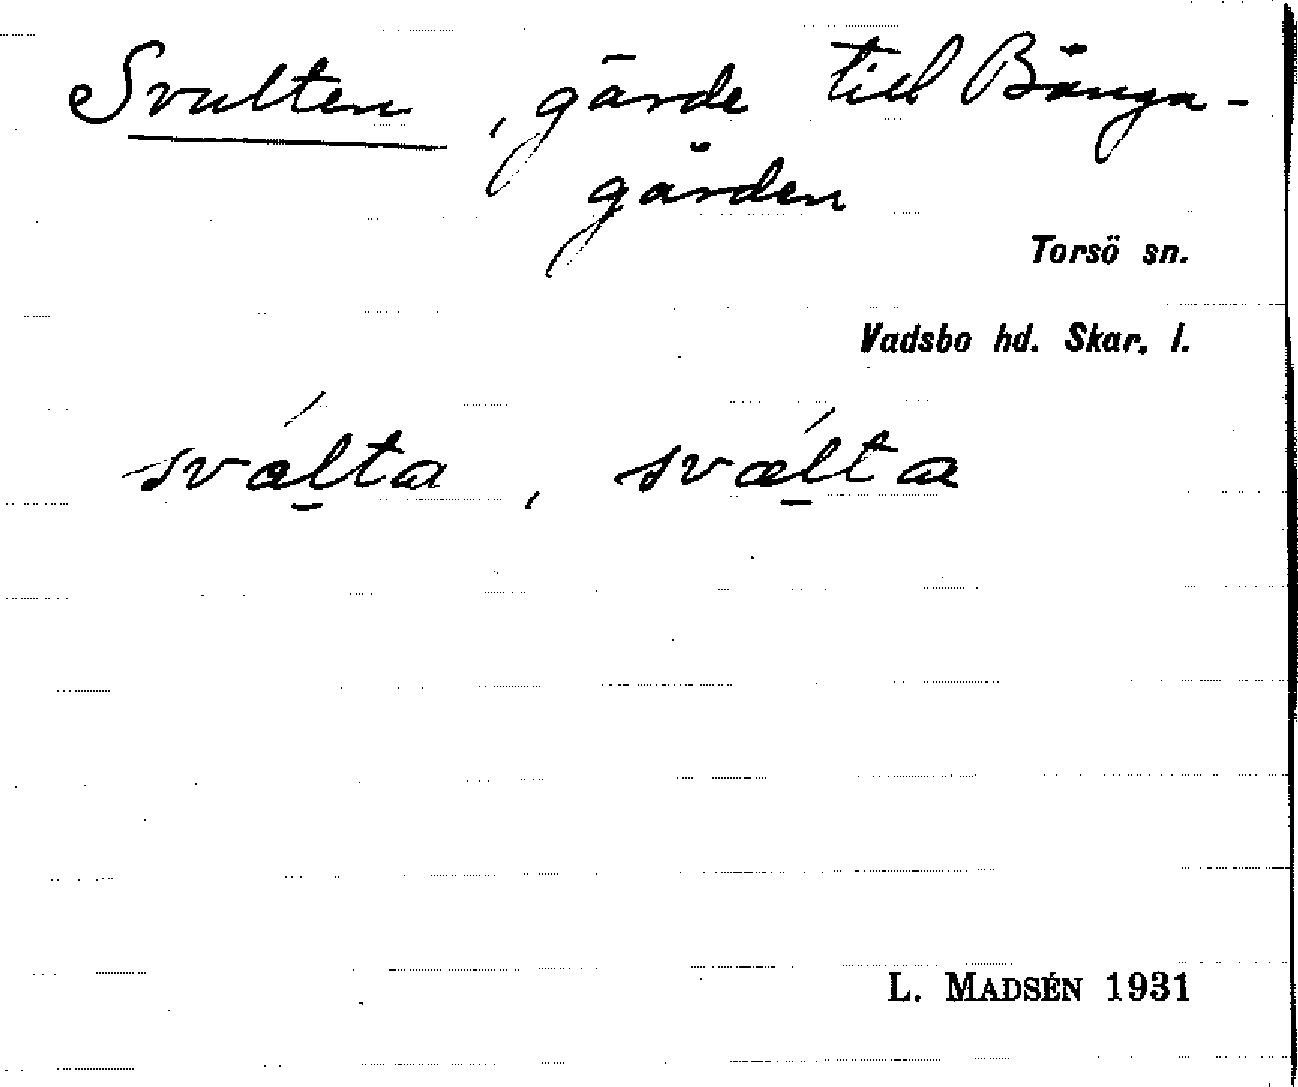 Svulten, gärde till Bånga-
gården
Torsö sn.
Vadsbo hd. Skar. l.
L. MADSÉN 1931